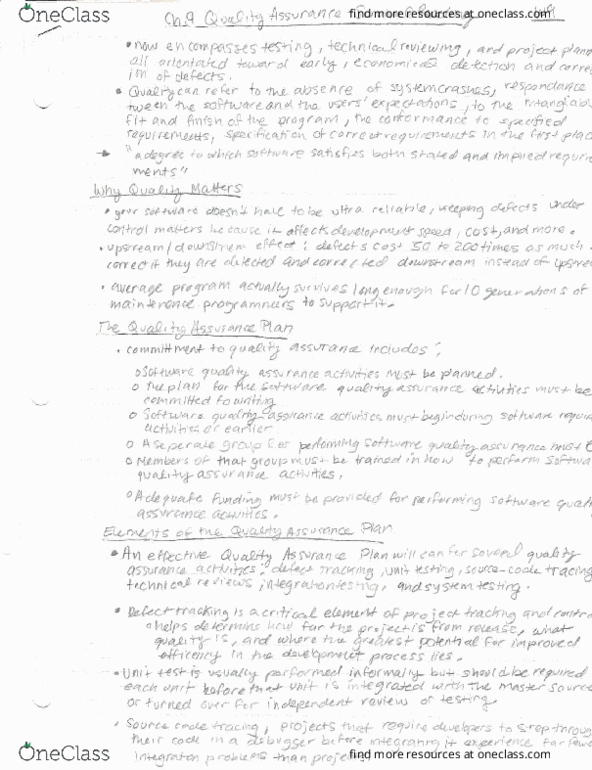 OneClass
find more resources at oneclass.com
Ch.9 Quality Assurance
find more resources at oneclass.com
• now encompasses testing, technical reviewing, and project plan
all orientated toward early, economical detection and corre
of defects.
• Quality can refer to the absence of system crashes, respondance
tween the software and the users' expectations, to the intangiab
fit and finish of the program, the conformance to specified
requirements, specification of correct requirements in the first plac
→ "a degree to which software satisfies both stated and implied require
ments"
Why Quality Matters
• your software doesn't have to be ultra reliable, keeping defects under
control matters because it affects development speed, cost, and more.
• upstream/downstream effect: defects cost 50 to 200 times as much
correct if they are detected and corrected downstream instead of upstre
• average program actually survives long enough for 10 generations of
maintenence programmers to support it.
The Quality Assurance Plan
• committment to quality assurance includes:
o Software quality assurance activities must be planned.
o the plan for the software quality assurance activities must be
committed to writing
o Software quality-assurance activities must begin during software requir
activities or earlier
o A seperate group for performing software quality assurance must
o Members of that group must be trained in how to perform softwa
quality assurance activities.
o Adequate funding must be provided for performing software quali
assurance activities.
Elements of the Quality Assurance Plan
• An effective Quality Assurance Plan will call for several quality
assurance activities: defect tracking, unit testing, source-code tracing
technical reviews, integration testing, and system testing.
• Defect tracking is a critical element of project tracking and contro
helps determine how far the project is from release, what
quality is, and where the greatest potential for improved
efficency in the development process lies.
• Unit test is usually performed informally but should be required
each unit before that unit is integrated with the master source
or turned over for independent review or testing.
• Source code tracing, projects that require developers to step throug
their code in a debugger before integrating it experience far few
integration problems than projec
OneClass
find more resources at oneclass.com